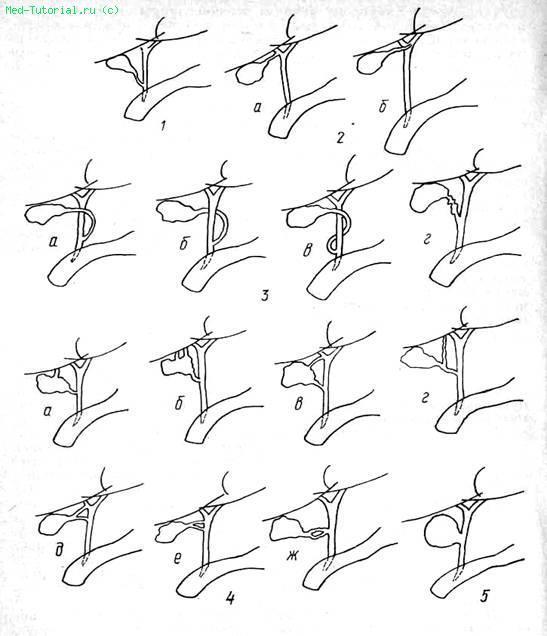 Med-Tutorial.ru (c)
1
а
2
б
а
б
3
в
г
а
б
в
г
д
е
4
ж
5